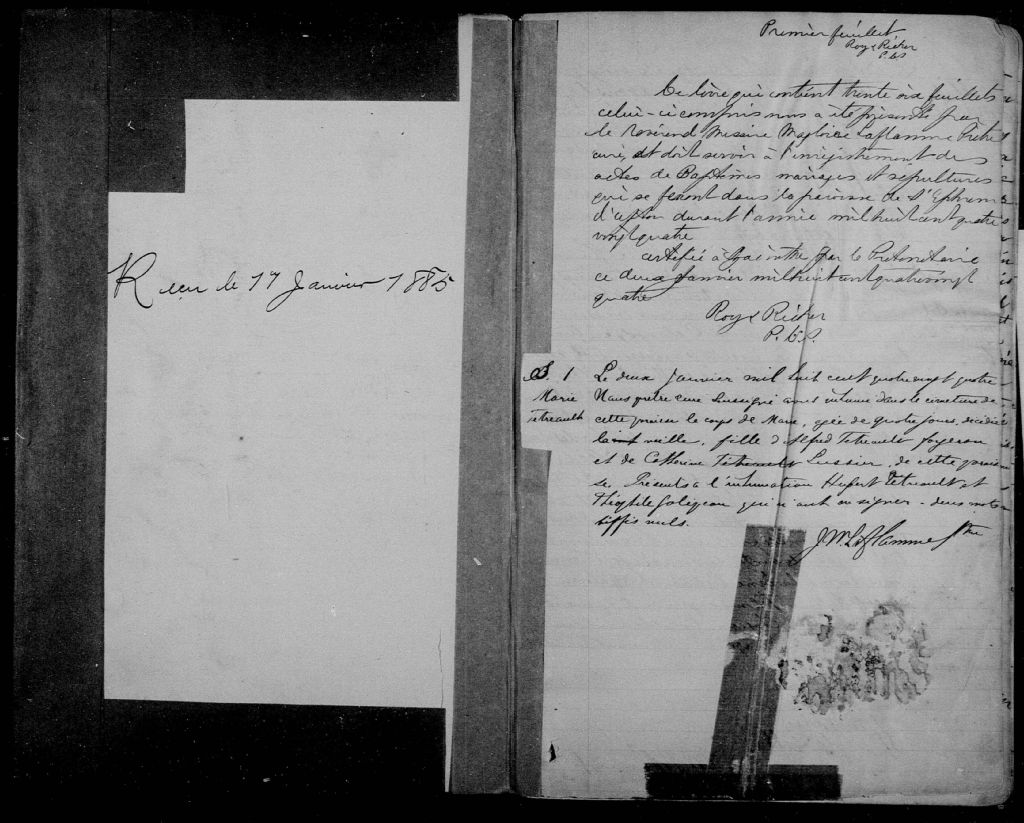 Reçu le 17 Janvier 1885
Premier feuillet
Roy & Richer
P. C. S.
Ce livre qui contient trente six feuillets
celui-ci compris nous a été présenté par
le Révérend Messire Magloire Laflamme Prêtre
curé, et doit servir à l'enregistrement des
actes de Baptêmes mariages et sépultures
qui se feront dans la paroisse de St Ephrem
d'Upton durant l'année mil huit cent quatre
vingt quatre
certifié à St Hyacinthe par le Protonotaire
ce deux Janvier mil huit cent quatre vingt
quatre
Roy & Richer
P. C. S.
S. 1
Marie
Tétreault
Le deux Janvier mil huit cent quatre vingt quatre
Nous prêtre curé soussigné avons inhumé dans le cimetière de
cette paroisse le corps de Marie, âgée de quatre jours décédée
la veille, fille d'Alfred Tétreault forgeron
et de Catherine Tétreault Lussier, de cette parois
se. Présents à l'inhumation Hubert Tétreault et
Théophile qui n'ont su signer - deux mots
biffés nuls.
J. M. Laflamme Ptre